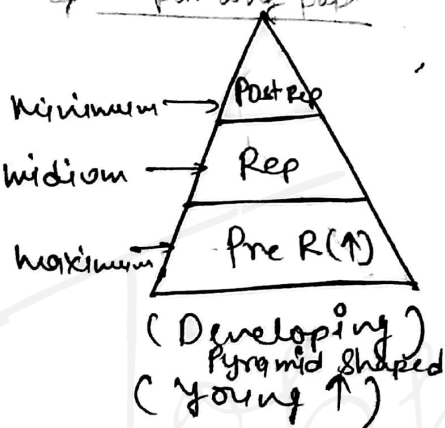 minimum → Post Rep
midium → Rep
maximum → Pre R(↑)
(Developing)
Pyramid Shaped
(Young ↑)